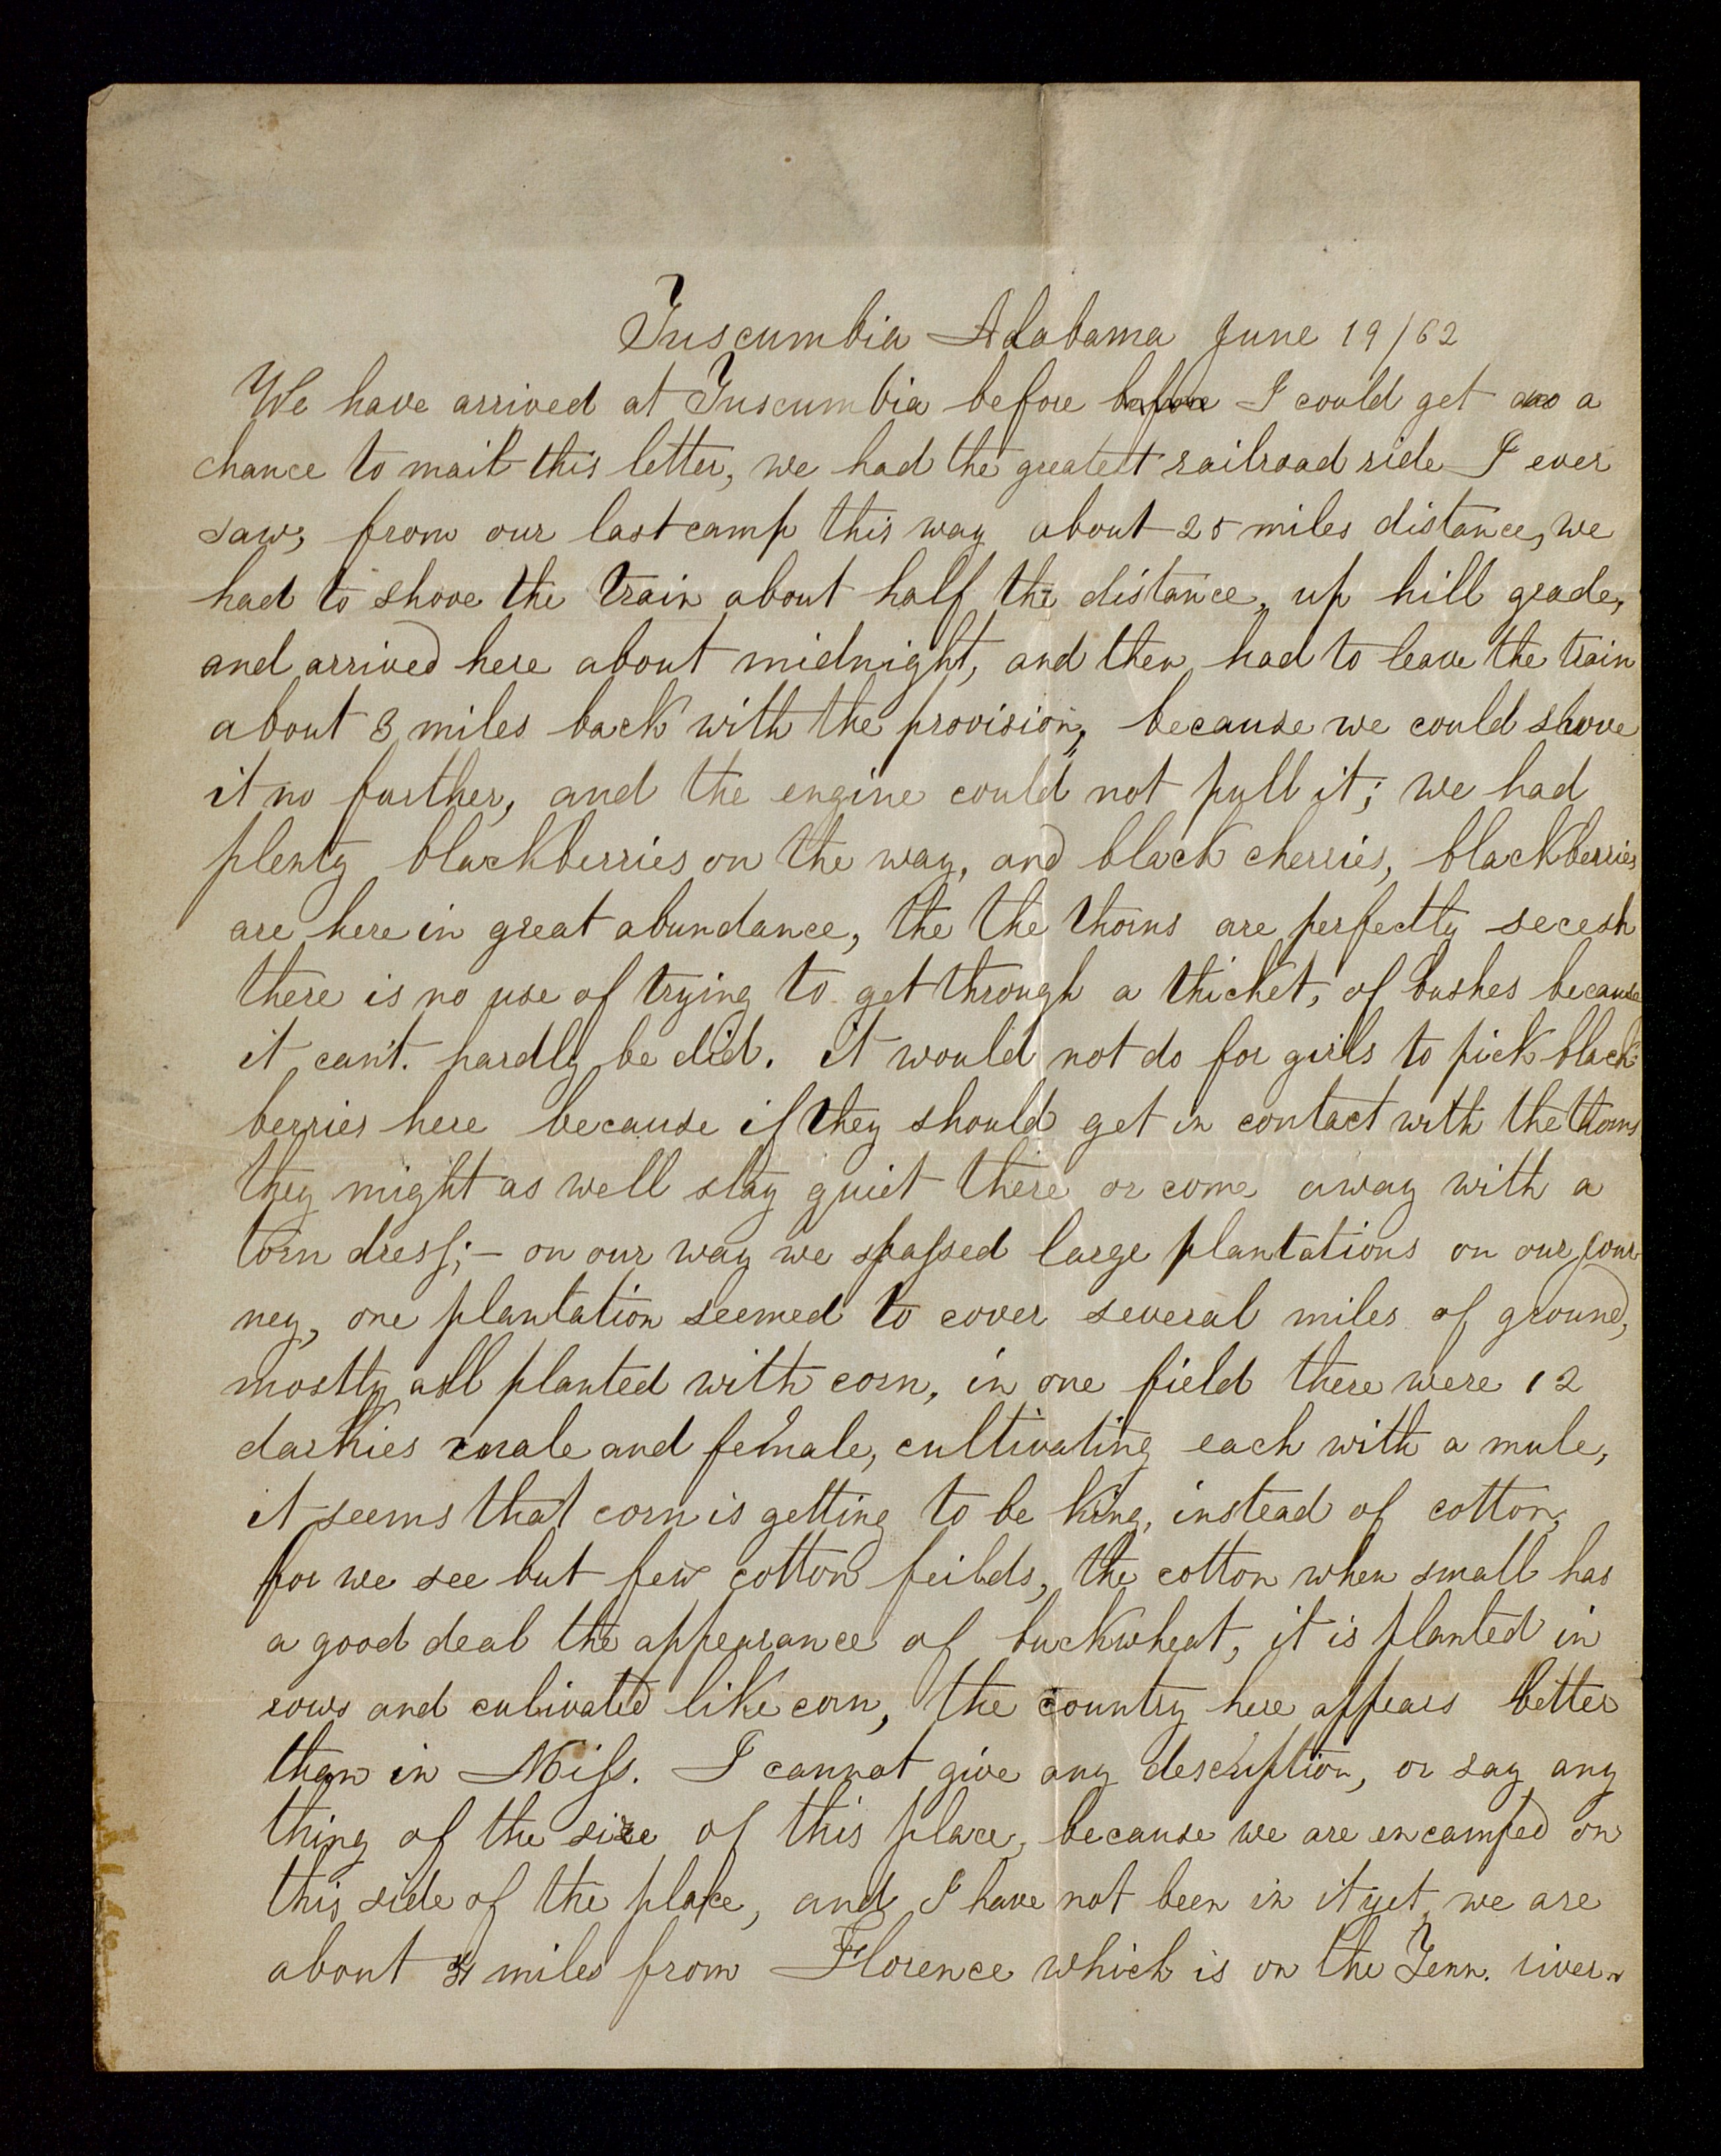 Tuscumbia Alabama June 19/62
We have arrived at Tuscumbia before before I could get a
chance to mail this letter, we had the greatest railroad ride I ever
saw, from our last camp this way about 25 miles distance, we
had to shove the train about half the distance, up hill grade,
and arrived here about midnight, and then had to leave the train
about 3 miles back with the provision, because we could shove
it no further, and the engine could not pull it; we had
plenty blackberries on the way, and black cherries, blackberries
are here in great abundance, the the thorns are perfectly secesh
there is no use of trying to get through a thicket, of bushes because
it can't. hardly be did. it would not do for girls to pick black
berries here because if they should get in contact with the thorns
they might as well stay quiet there or come away with a
torn dress; – on our way we passed large plantations on our jour
ney, one plantation seemed to cover several miles of ground,
mostly all planted with corn, in one field there were 12
darkies male and female, cultivating each with a mule,
it seems that corn is getting to be king, instead of cotton,
for we see but few cotton feilds, the cotton when small has
a good deal the appearance of buckwheat, it is planted in
rows and culivated like corn, the country here appears better
than in Miss. I cannot give any description, or say any
thing of the size of this place, because we are encamped on
this side of the place, and I have not been in it yet, we are
about miles from Florence which is on the Tenn. river.